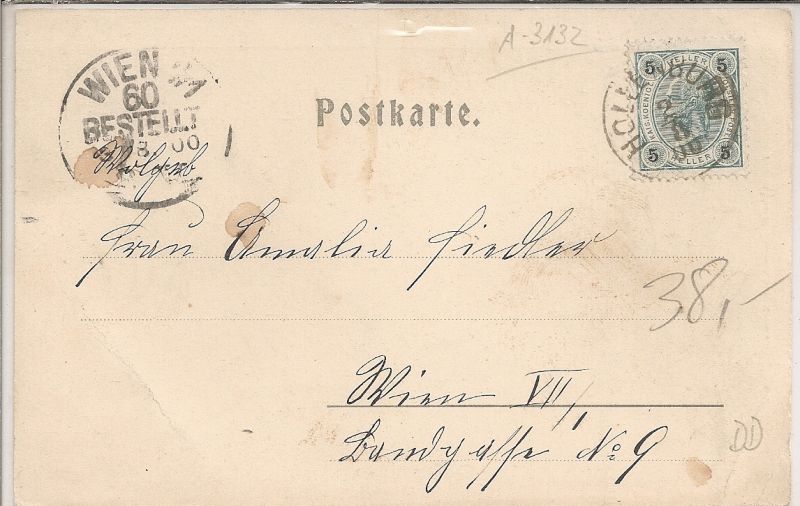 A-3132
WIEN
60
BESTELLT
00
Postkarte.
HOLLENBURG
5 HELLER 5
5 HELLER 5
Wolgeb
Frau Amalia Fiedler
38,-
Wien VII/1
Bandgasse No 9
DD